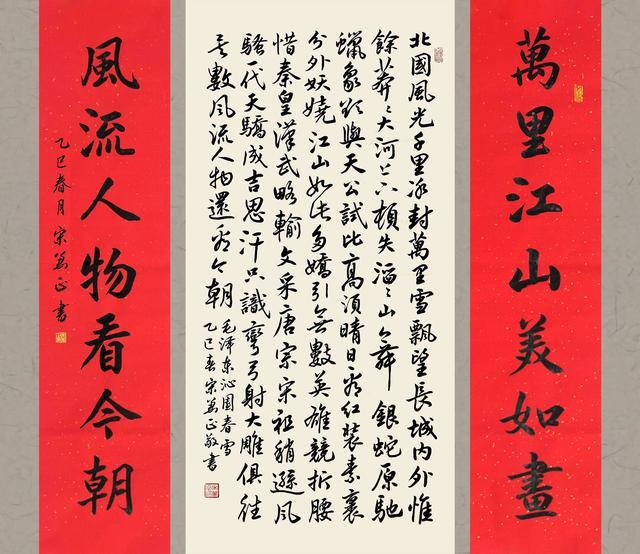 萬里江山美如畫
北國風光千里冰封萬里雪飄望長城內外惟
餘莽〻大河上下頓失滔〻山舞銀蛇原馳
蠟象欲與天公試比高須晴日看紅裝素裹
分外妖嬈江山如此多嬌引無數英雄競折腰
惜秦皇漢武略輸文采唐宗宋祖稍遜風
騷一代天驕成吉思汗只識彎弓射大雕俱往
矣數風流人物還看今朝
毛澤東沁園春雪
乙巳春宋正敬書
風流人物看今朝
乙巳春月宋正書